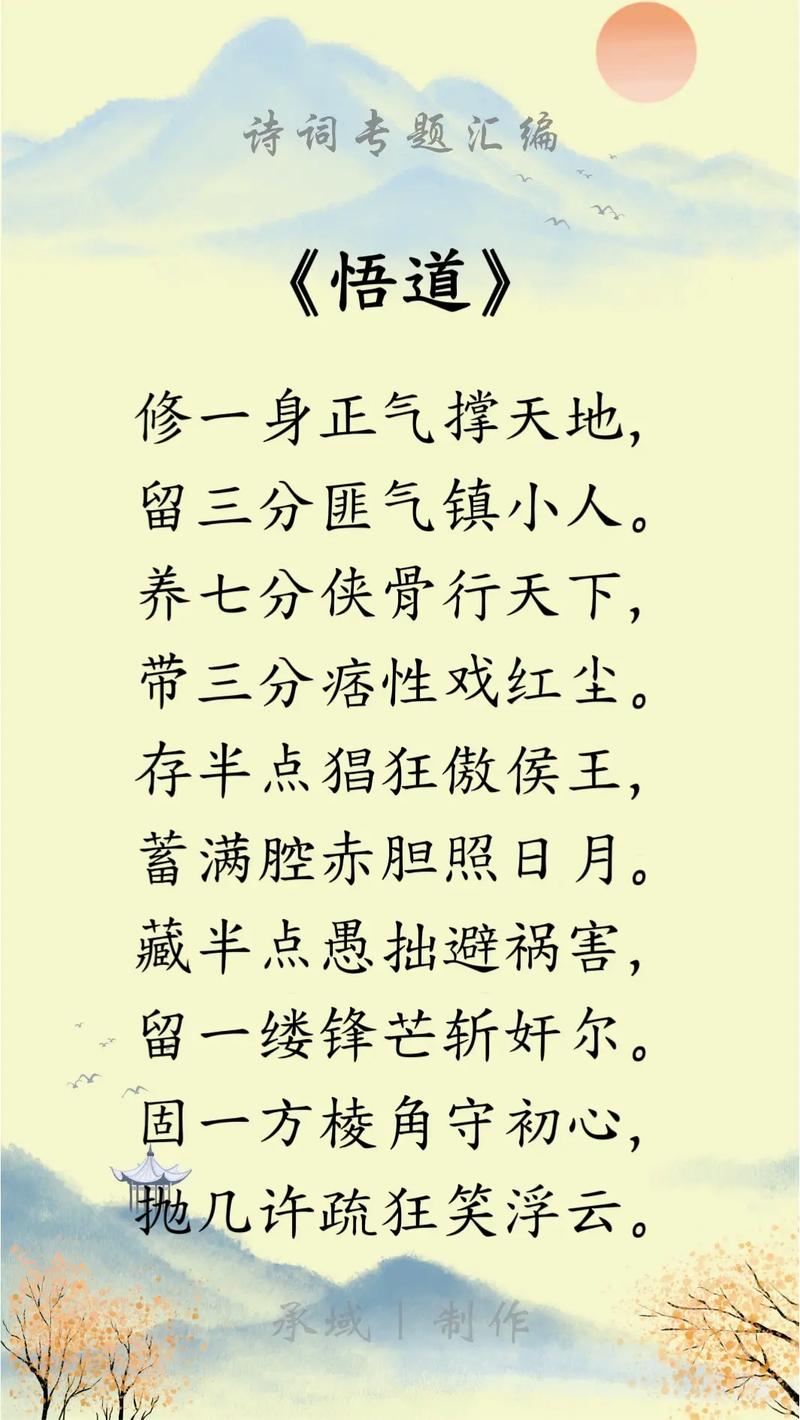 诗词专题汇编
《悟道》
修一身正气撑天地，
留三分匪气镇小人。
养七分侠骨行天下，
带三分痞性戏红尘。
存半点猖狂傲侯王，
蓄满腔赤胆照日月。
藏半点愚拙避祸害，
留一缕锋芒斩奸尔。
固一方棱角守初心，
抛几许疏狂笑浮云。
承域｜制作